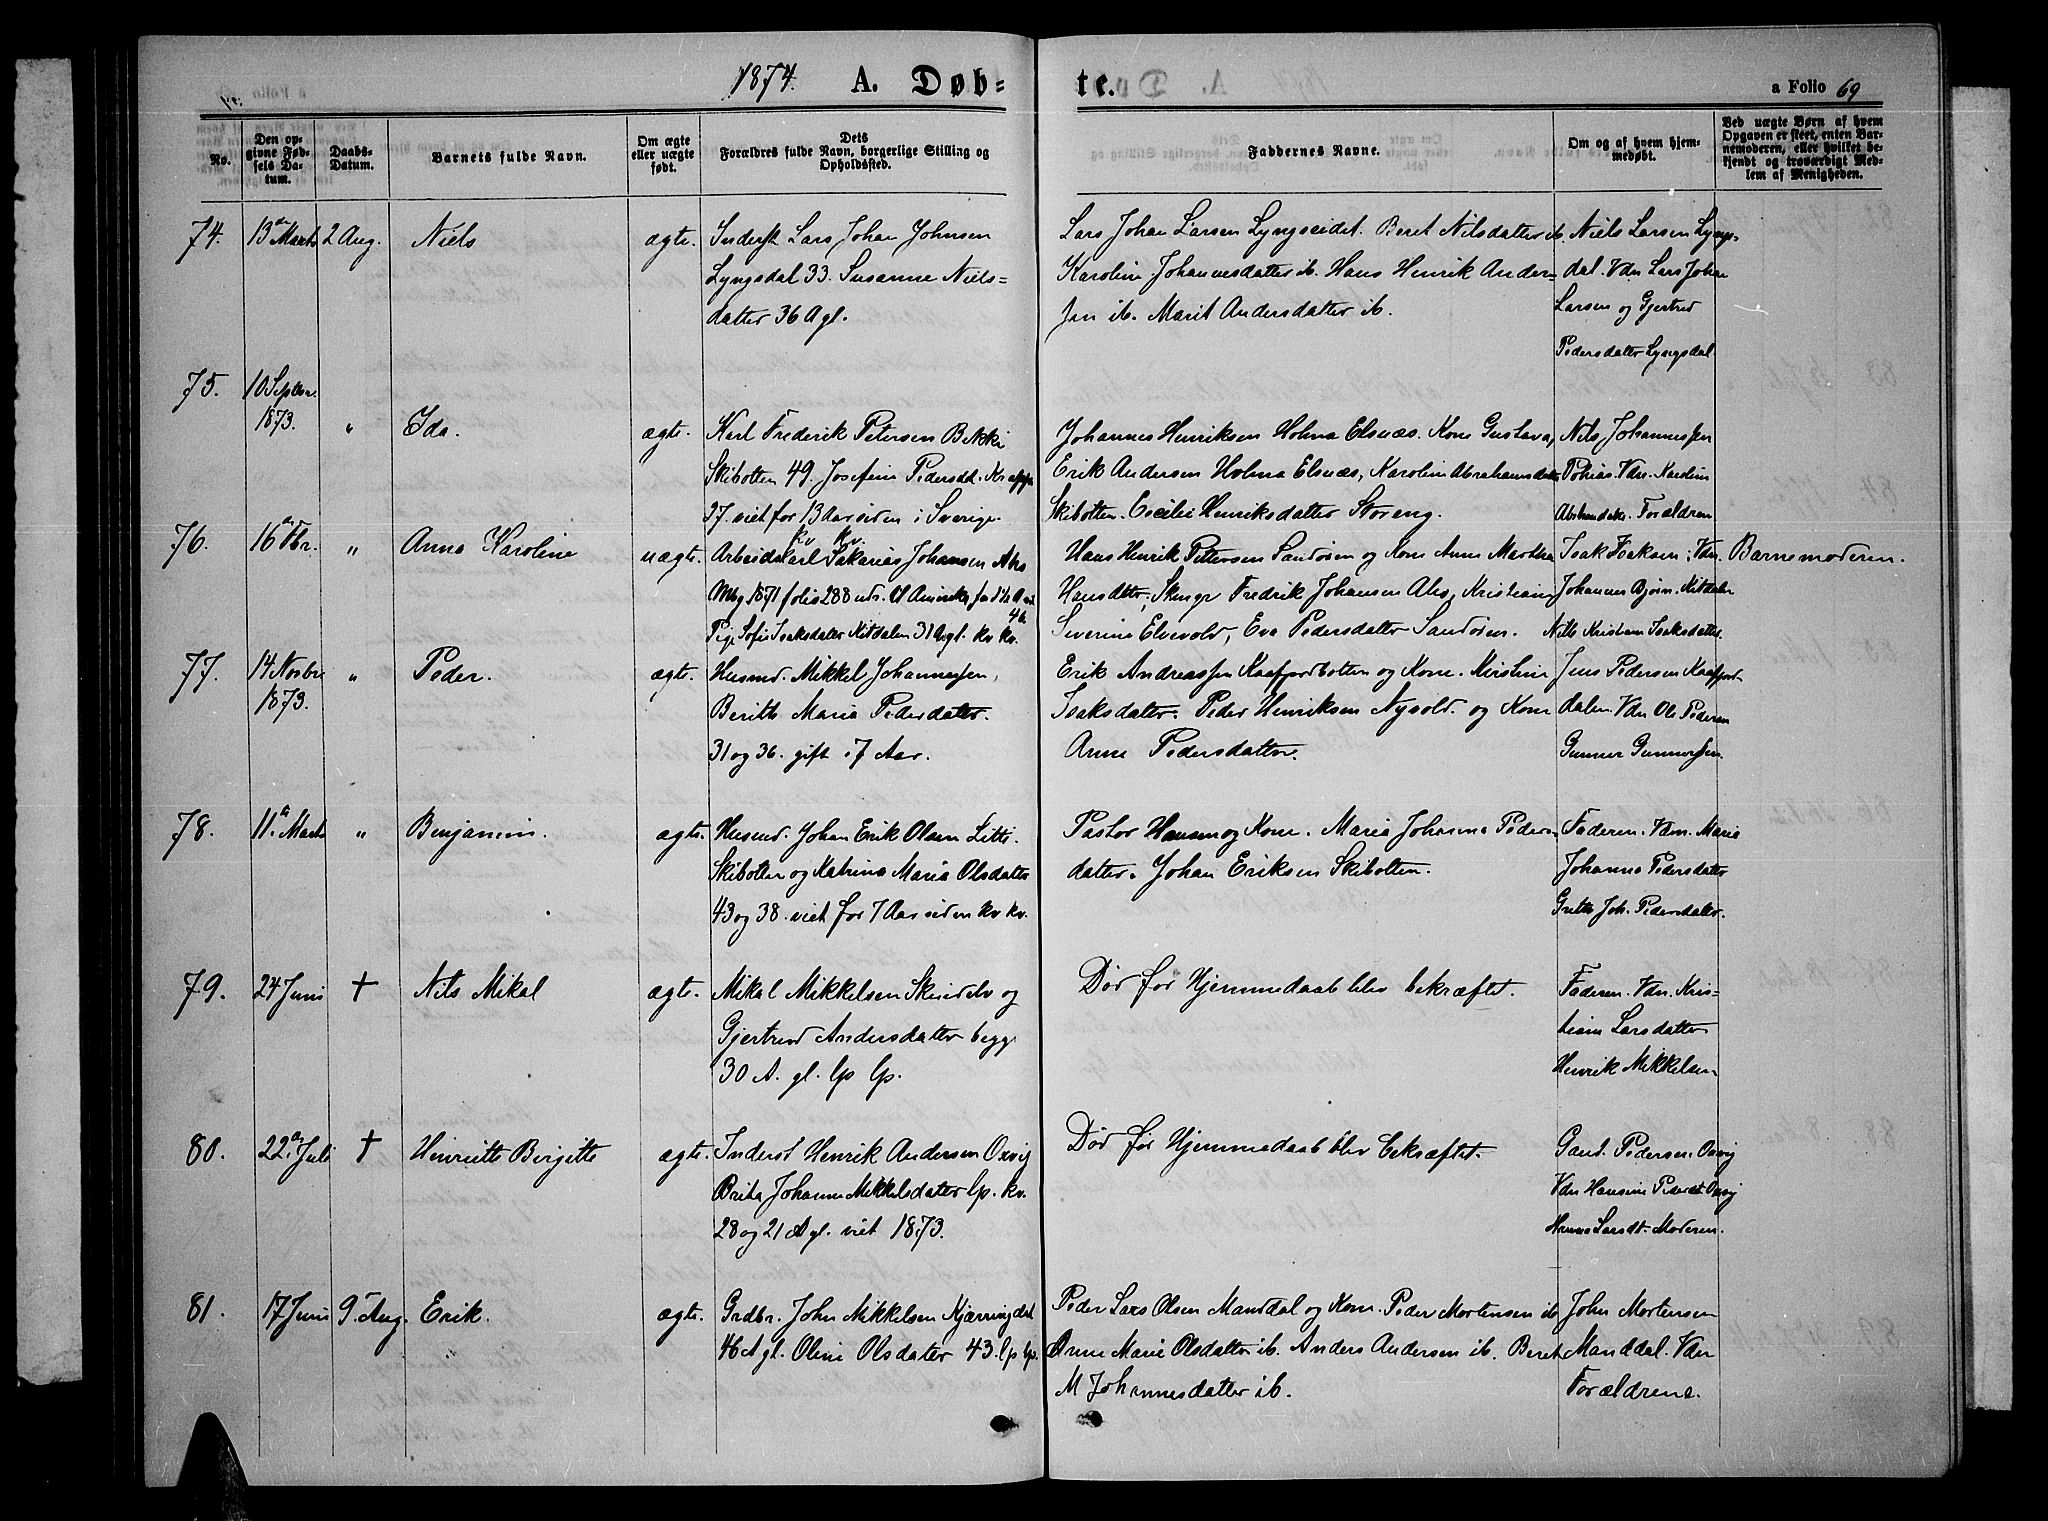 1874. A. Døb= te. a Folio 69
No.
Den op-
givne Fød-
sels Da-
tum.
Daabs-
Datum.
Barnets fulde Navn.
Om ægte
eller uægte
født.
Dets
Forældres fulde Navn, borgerlige Stilling og
Opholdssted.
Faddernes Navne.
Om og af hvem hjem-
medøbt.
Ved uægte Børn af hvem
Opgaven er skeet, enten Bar-
nemoderen, eller hvilket be-
kjendt og troværdigt Med-
lem af Menigheden.
74. 13de Marts 2 Aug. Niels ægte. Inderst Lars Johan Johnsen
Lyngsdal 33. Susanne Niels=
datter 36 A gl.
Lars Johan Larsen Lyngseidet. Beret Nilsdatter ib.
Karoline Johannesdatter ib. Hans Henrik Ander=
sen ib. Marit Andersdatter ib.
Niels Larsen Lyngs=
dal. Vdn Lars Johan
Larsen og Gjertrud
Pedersdatter Lyngsdal.
75. 10 Septbr.
1873. " Ida. ægte. Karl Frederik Petersen Bekki
Skibotten 49. Josefine Pedersdt.
37. viet for 13 Aar siden i Sverige.
Johannes Henriksen Holma Elsnæs. Kone Gustava,
Erik Andersen Holma Elsnæs, Karoline Abrahamsdatter
Skibotten. Cecilie Henriksdatter Storeng.
Nils Johannessen
Tobias. Vdn. Karoline
Abrhmdatter. Forældrene
76. 16de Fbr. " Anna Karoline uægte. Arbeidskarl Sakarias Johansen
kv kv.
1871 folio 288 udr. til Amerika
Pige Sofie Isaksdatter Kitdalen 31 A gl. kv kv.
Hans Henrik Pettersen Sandøren og Kone Anne Martha
Hansdtter, Fredrik Johansen Kristian
Severine Elvevold, Eva Pedersdatter Sandøren.
Isak Isaksen. Vdn.
Johannes Bjørn. Kitdalen
Nils Kristian Isaksdatter.
Barnemoderen.
77. 14 Novbr
1873. " Peder. ægte. Husmd. Mikkel Johannessen,
Berith Maria Pedersdatter.
31 og 36. gift i 7 Aar.
Erik Andreassen Kaafjordbotten og Kone. Kirstine
Isaksdatter. Peder Henriksen Nyvold. og Kone
Anne Pedersdatter.
Jens Pedersen Kaafjord
dalen. Vdn Ole Pedersen
Gunner Gunnersen
78. 11te Marts " Benjamin. ægte. Husmd. Johan Erik Olsen
Skibotten og Katrina Maria Olsdatter
43 og 38. viet for 7 Aar siden kv kv.
Pastor Hansen og Kone. Maria Johanna Peders=
datter. Johan Eriksen Skibotten.
Faderen. Vdn. Maria
Johanna Pedersdatter
Grethe Joh. Pedersdatter.
79. 24 Juni † Nils Mikal ægte. Mikal Mikkelsen Skindelv og
Gjertrud Andersdatter begge
30 A. gl. lp lp.
Død før Hjemmedaab blev bekræftet.
Faderen. Vdn. Kris=
tian Larsdatter
Henrik Mikkelsen
80. 22de Juli † Henriette Birgitte ægte. Inderst Henrik Andersen Oxvig
Brita Johanne Mikkelsdatter lp. kv.
28 og 21 A gl. viet 1873.
Død før Hjemmedaab blev bekræftet.
Pedersen. Oxvig
Vdn Hansine Pedersdt Oxvig
Larsdt. Moderen.
81. 17 Juni 9de Aug. Erik. ægte. Grdbr. John Mikkelsen Kjærringdal
46 A gl. Oline Olsdatter 43. lp lp.
Peder Lars Olsen Manddal og Kone. Peder Mortensen ib
Anne Marie Olsdatter ib. Anders Andersen ib. Beret
M Johannesdatter ib.
John Mortensen
Manddal. Vdn
Forældrene.